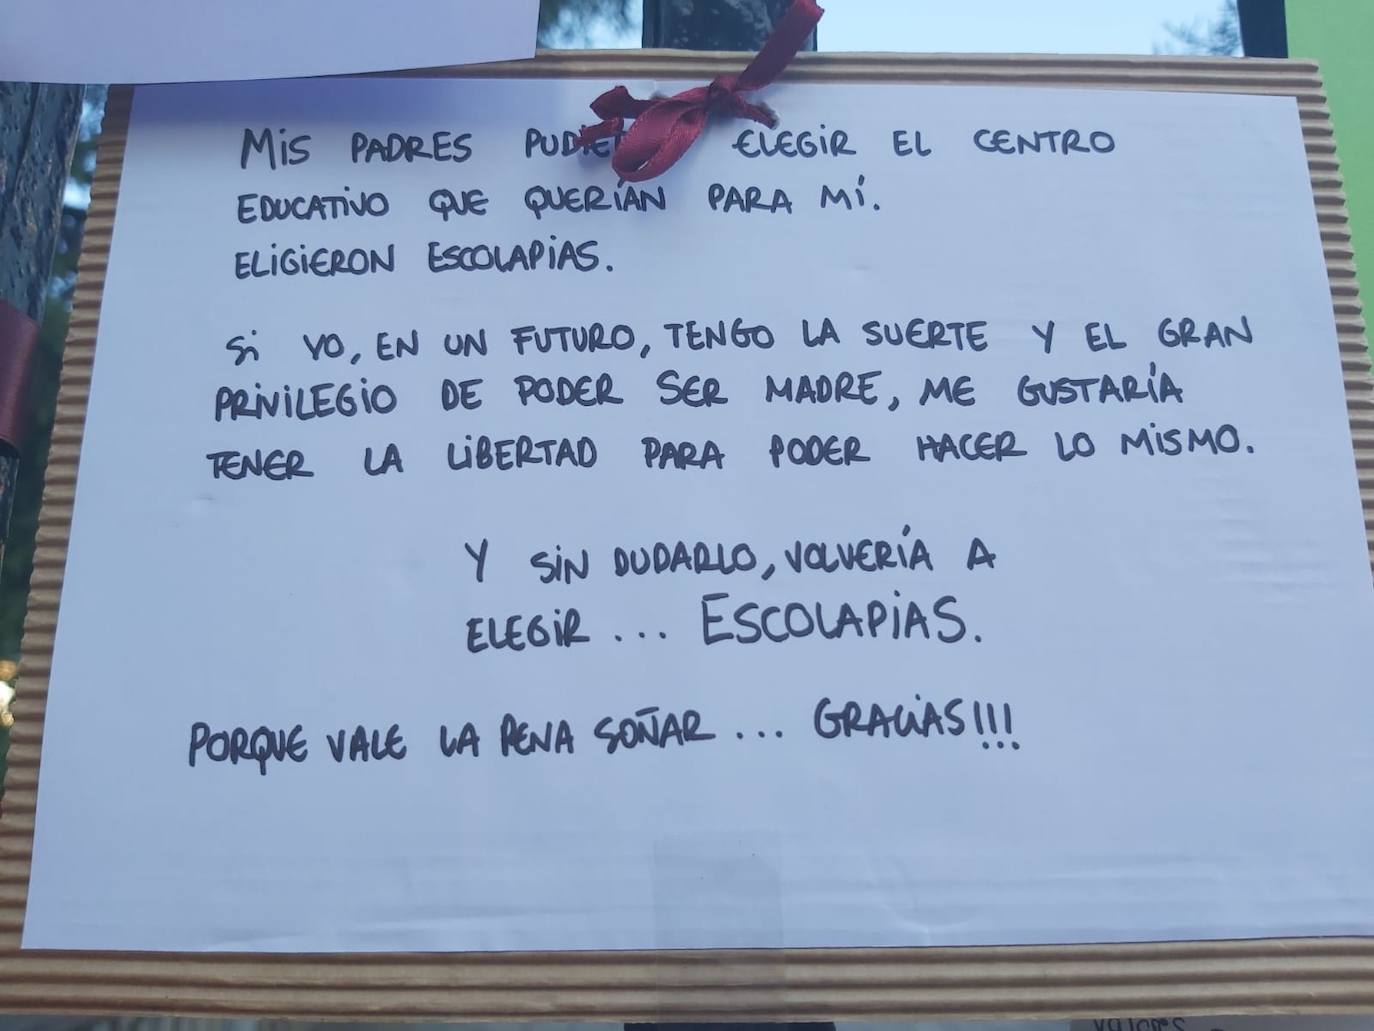 MIS PADRES ELEGIR EL CENTRO
EDUCATIVO QUE QUERÍAN PARA MÍ.
ELIGIERON ESCOLAPIAS.
SI YO, EN UN FUTURO, TENGO LA SUERTE Y EL GRAN
PRIVILEGIO DE PODER SER MADRE, ME GUSTARÍA
TENER LA LIBERTAD PARA PODER HACER LO MISMO.
Y SIN DUDARLO, VOLVERÍA A
ELEGIR... ESCOLAPIAS.
PORQUE VALE LA PENA SOÑAR... GRACIAS!!!
valores